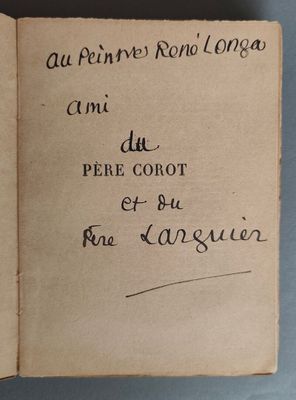 au Peintre René Longa
ami
du
PÈRE COROT
et du
Père Larguier